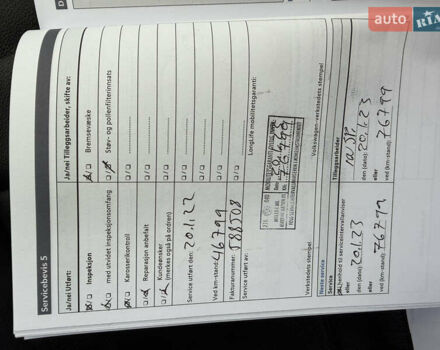 auto RIA
Servicebevis 5
Ja/nei Utført:
Inspeksjon
med utvidet inspeksjonsomfang
Karosserikontroll
Reparasjon anbefalt
Kundeønsker
(merkes også på ordren)
Service utført den: 20.1.22
Ved km-stand: 46799
Fakturanummer: 588508
Service utført av:
Verkstedets stempel
Neste service
i henhold til serviceintervallviser
den (dato): 20.1.23
eller
ved (km-stand): 76799
Ja/nei Tilleggsarbeider, skifte av:
Bremsevæske
Støv- og pollenfilterinnsats
LongLife mobilitetsgaranti:
Volkswagen-verkstedets stempel
Tilleggsarbeider
den (dato): 20.1.23
eller
ved (km-stand): 76799